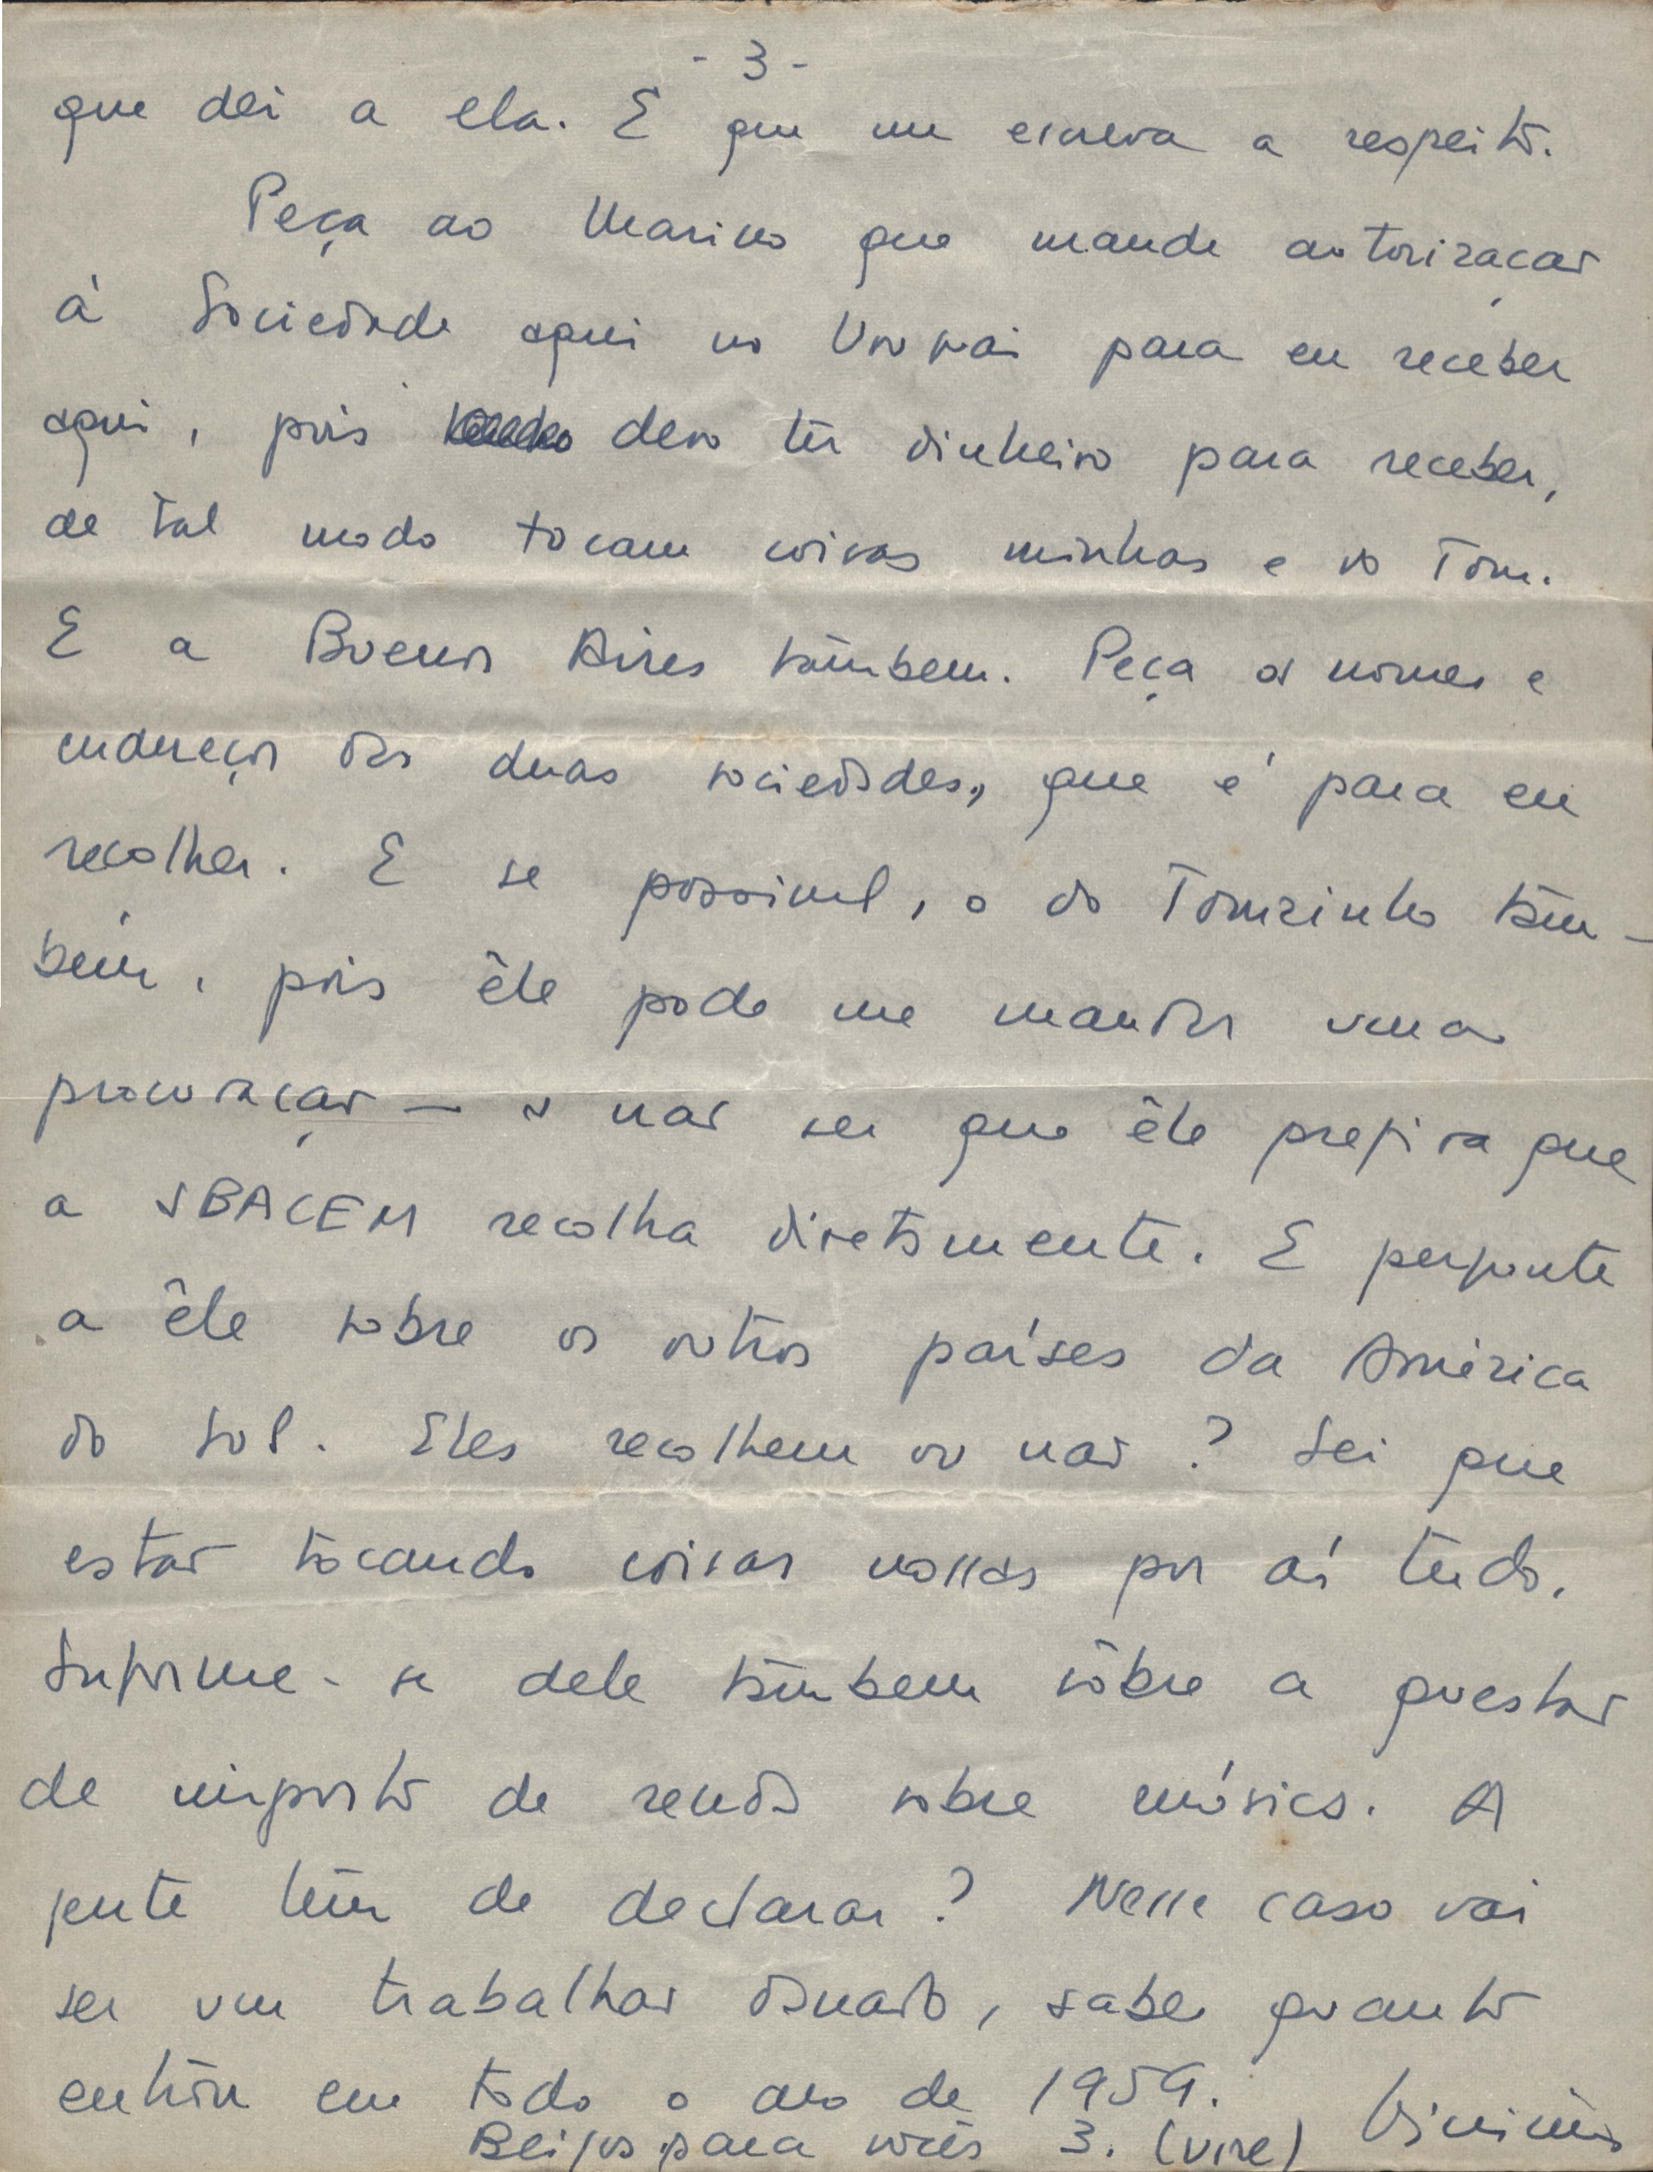 - 3 -
que dei a ela. E que me escreva a respeito.
Peça ao Marino que mande autorização
á Sociedade aqui no Uruguai para eu receber
aqui, pois devo ter dinheiro para receber,
de tal modo tocam coisas minhas e do Tom.
E a Buenos Aires tâmbem. Peça os nomes e
endereços das duas sociedades, que é para eu
recolher. E se possivel, o do Tomzinho tâm-
bém, pois êle pode me mandar uma
procuração — a não ser que êle prefira que
a SBACEM recolha diretamente. E pergunte
a êle sobre os outros países da América
do Sul. Eles recolhem ou não? Sei que
estão tocando coisas nossas por aí tudo.
Informe-se dele tâmbem sôbre a questão
de imposto de renda sobre música. A
gente têm de declarar? Nesse caso vai
ser um trabalhão danado, saber quanto
entrou em todo o ano de 1959.
Beijos para vocês 3. (vire) Vinicius